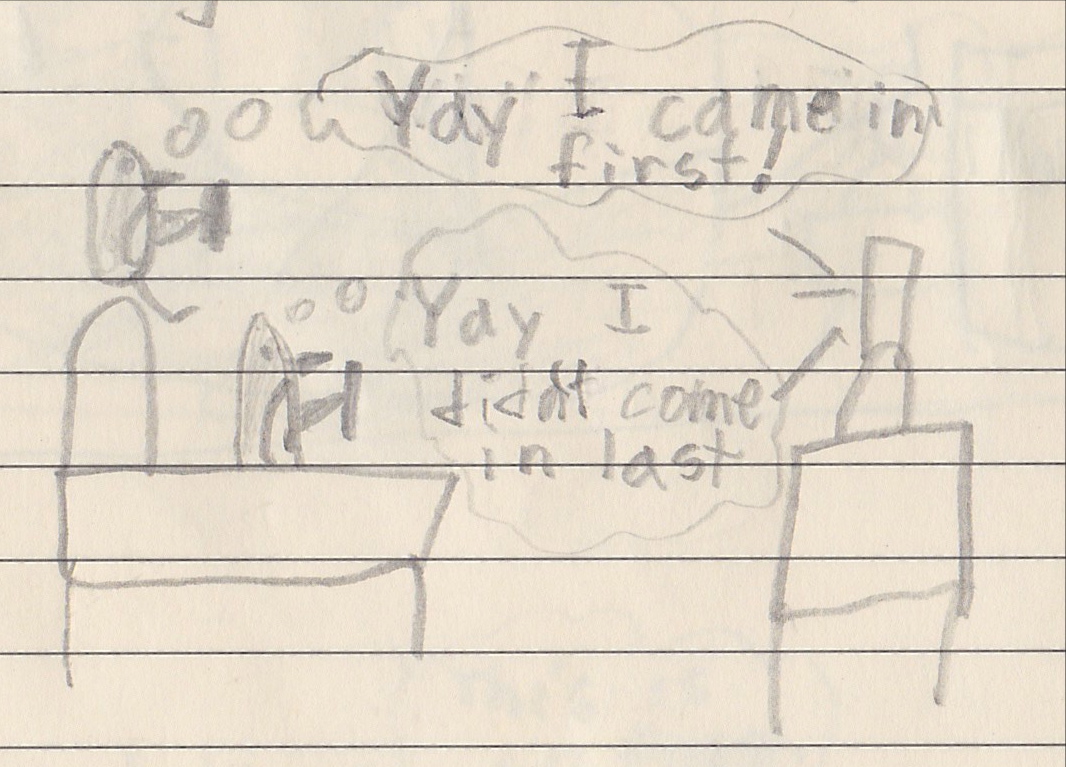 Yay I came in
first!
Yay I
didnt come
in last